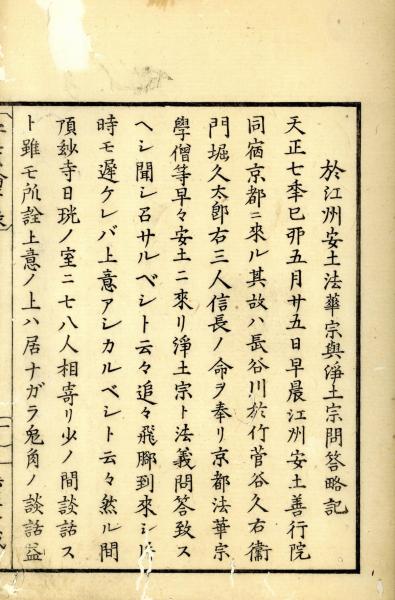 於江州安土法華宗與淨土宗問答略記
天正七年己卯五月廿五日早晨江州安土善行院
同宿京都ニ來ル其故ハ長谷川於竹菅谷久右衞
門堀久太郎右三人信長ノ命ヲ奉リ京都法華宗
學僧等早々安土ニ來リ淨土宗ト法義問答致ス
ヘシ聞シ召サルベシト云々追々飛脚到來シ片
時モ遲ケレバ上意アシカルベシト云々然ル間
頂妙寺日珖ノ室ニ七八人相寄リ少ノ間談話ス
ト雖モ所詮上意ノ上ハ居ナガラ兎角ノ談話益